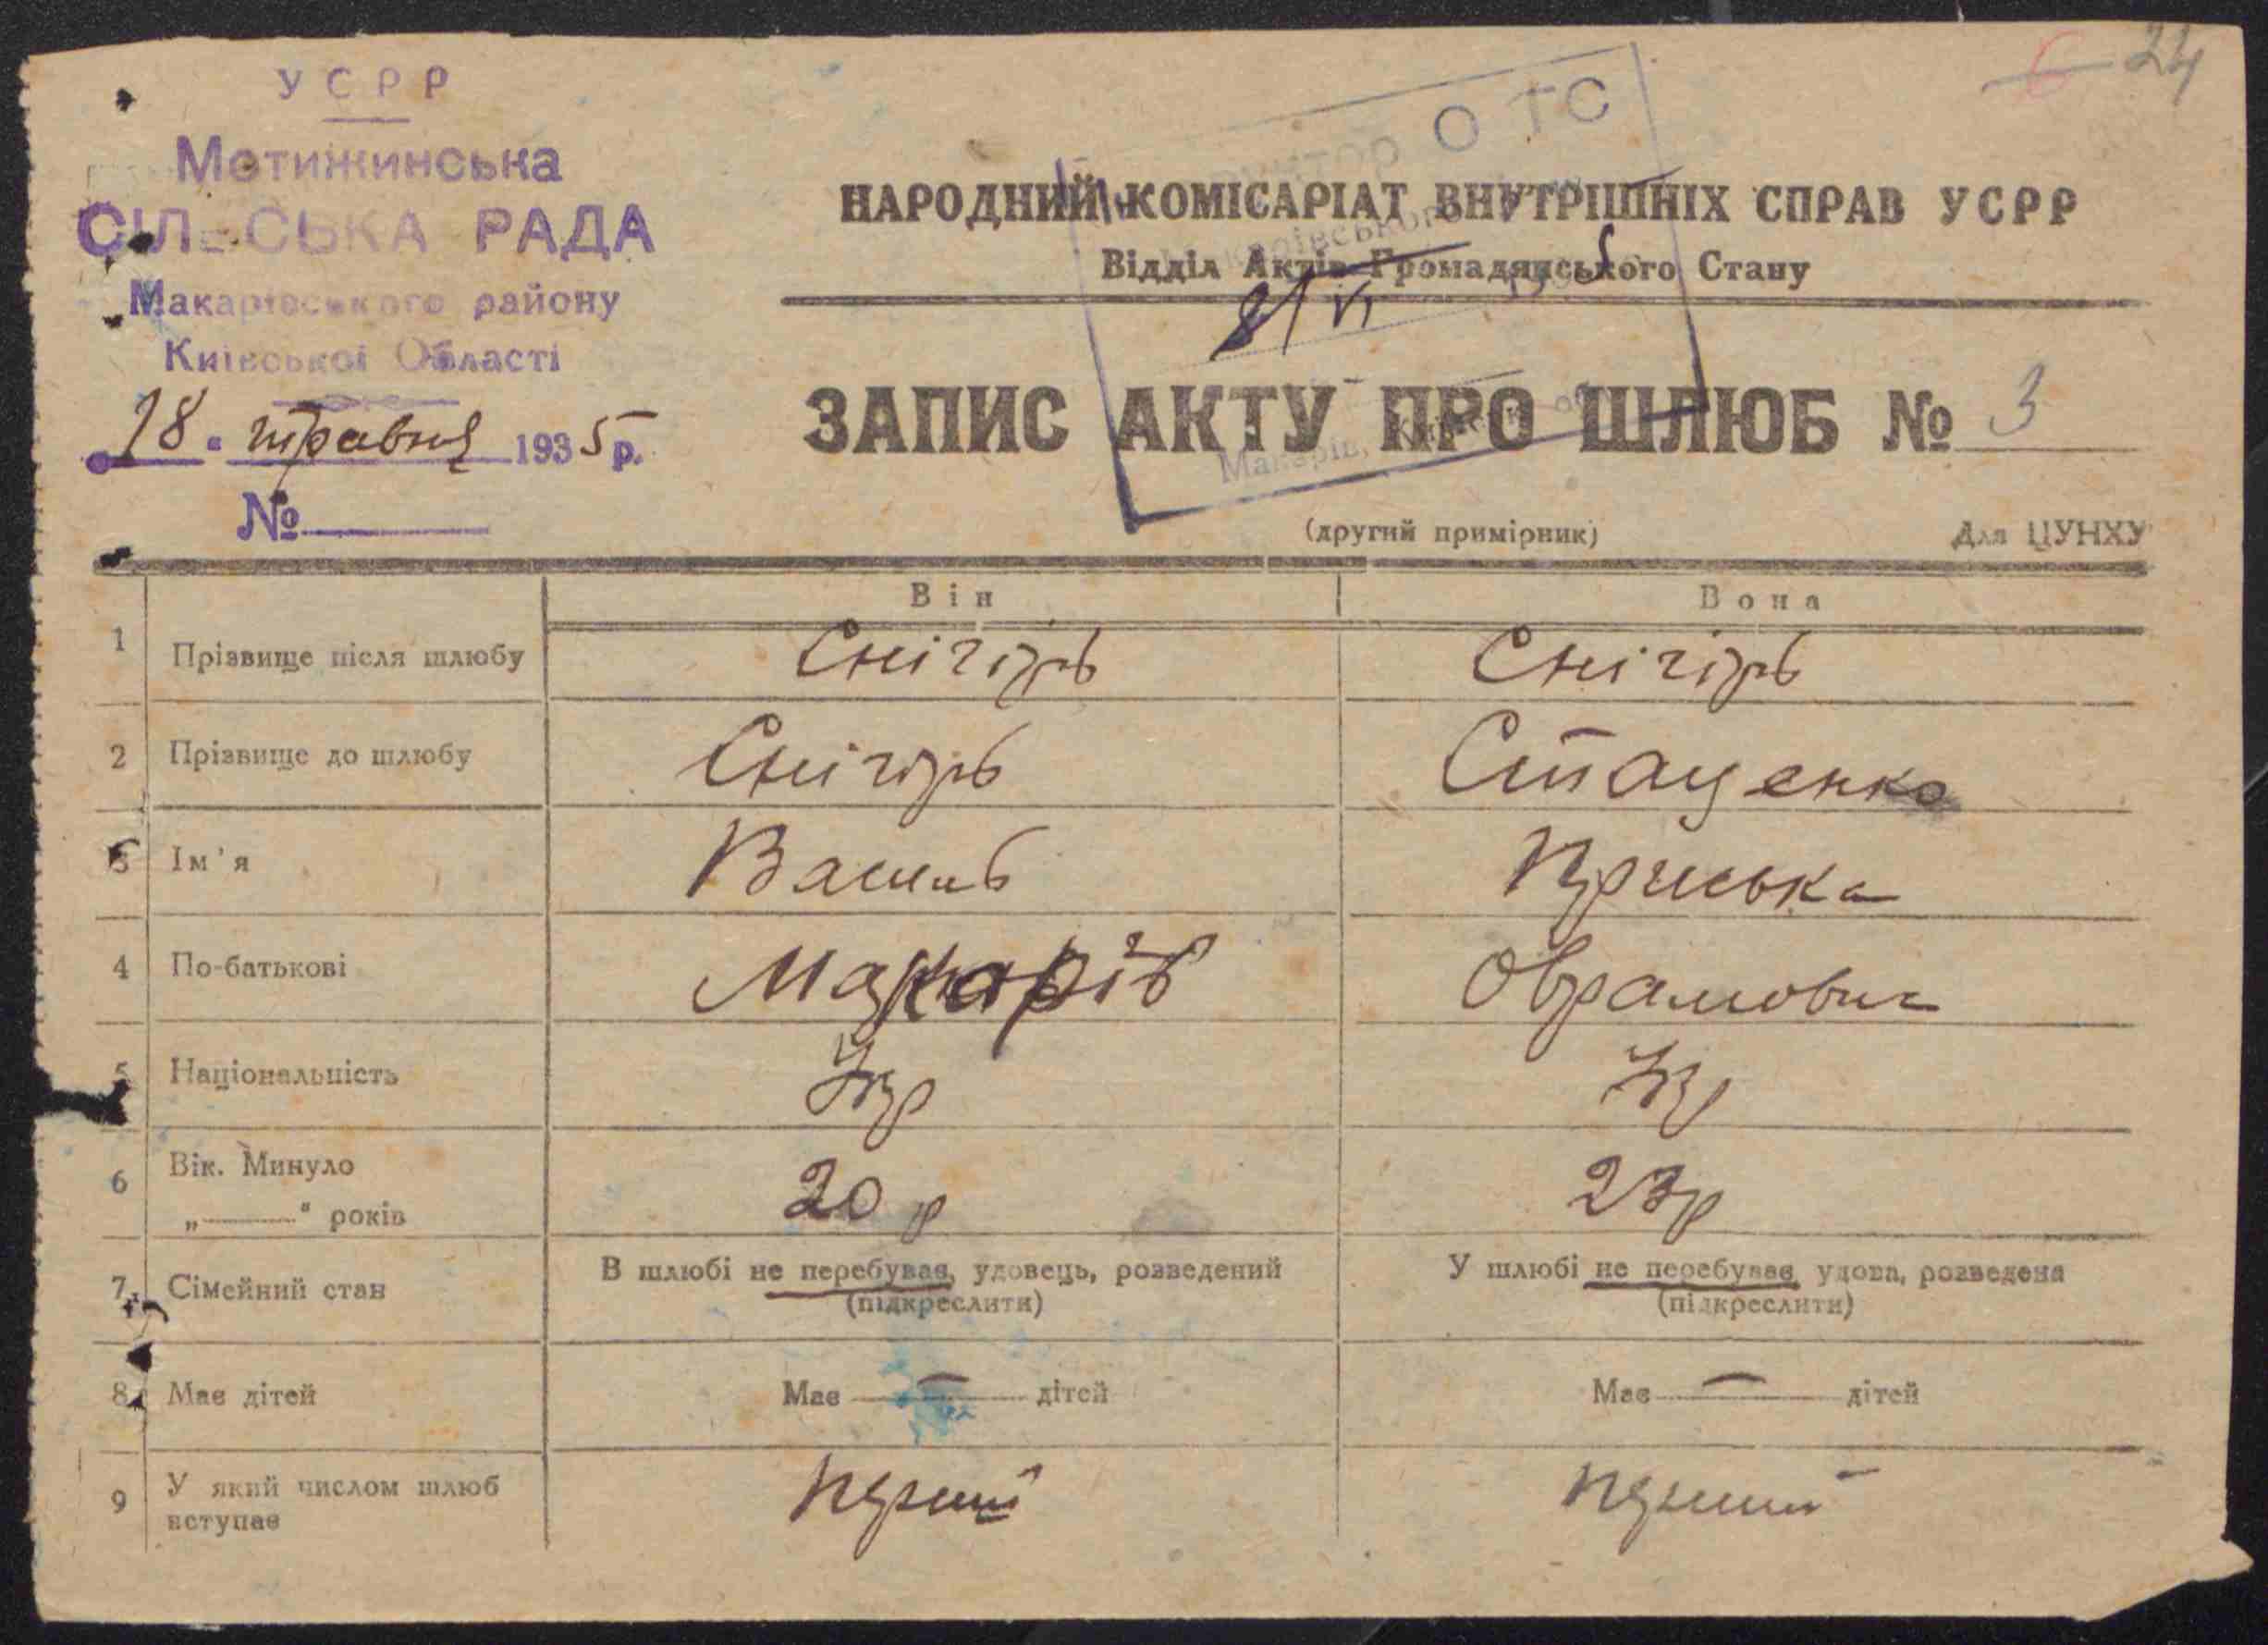 24
6
УСРР
Мотижинська
СІЛЬСЬКА РАДА
Макарівського району
Київської Області
18 " травня 1935 р.
№
ОГС
НАРОДНИЙ КОМІСАРІАТ ВНУТРІШНІХ СПРАВ УСРР
Відділ Актів Громадянського Стану
ЗАПИС АКТУ ПРО ШЛЮБ № 3
(другий примірник) Для ЦУНХУ
Він Вона
1 Прізвище після шлюбу Снігірь Снігірь
2 Прізвище до шлюбу Снігірь Стаценко
3 Ім'я Василь Приська
4 По-батькові Макарів Оврамович
5 Національність Укр Укр
6 Вік. Минуло
„ " років 20 р 23р
7 Сімейний стан В шлюбі не перебував, удовець, розведений У шлюбі не перебуває, удова, розведена
(підкреслити) (підкреслити)
8 Має дітей Має — дітей Має — дітей
9 У який числом шлюб
вступає перший перший